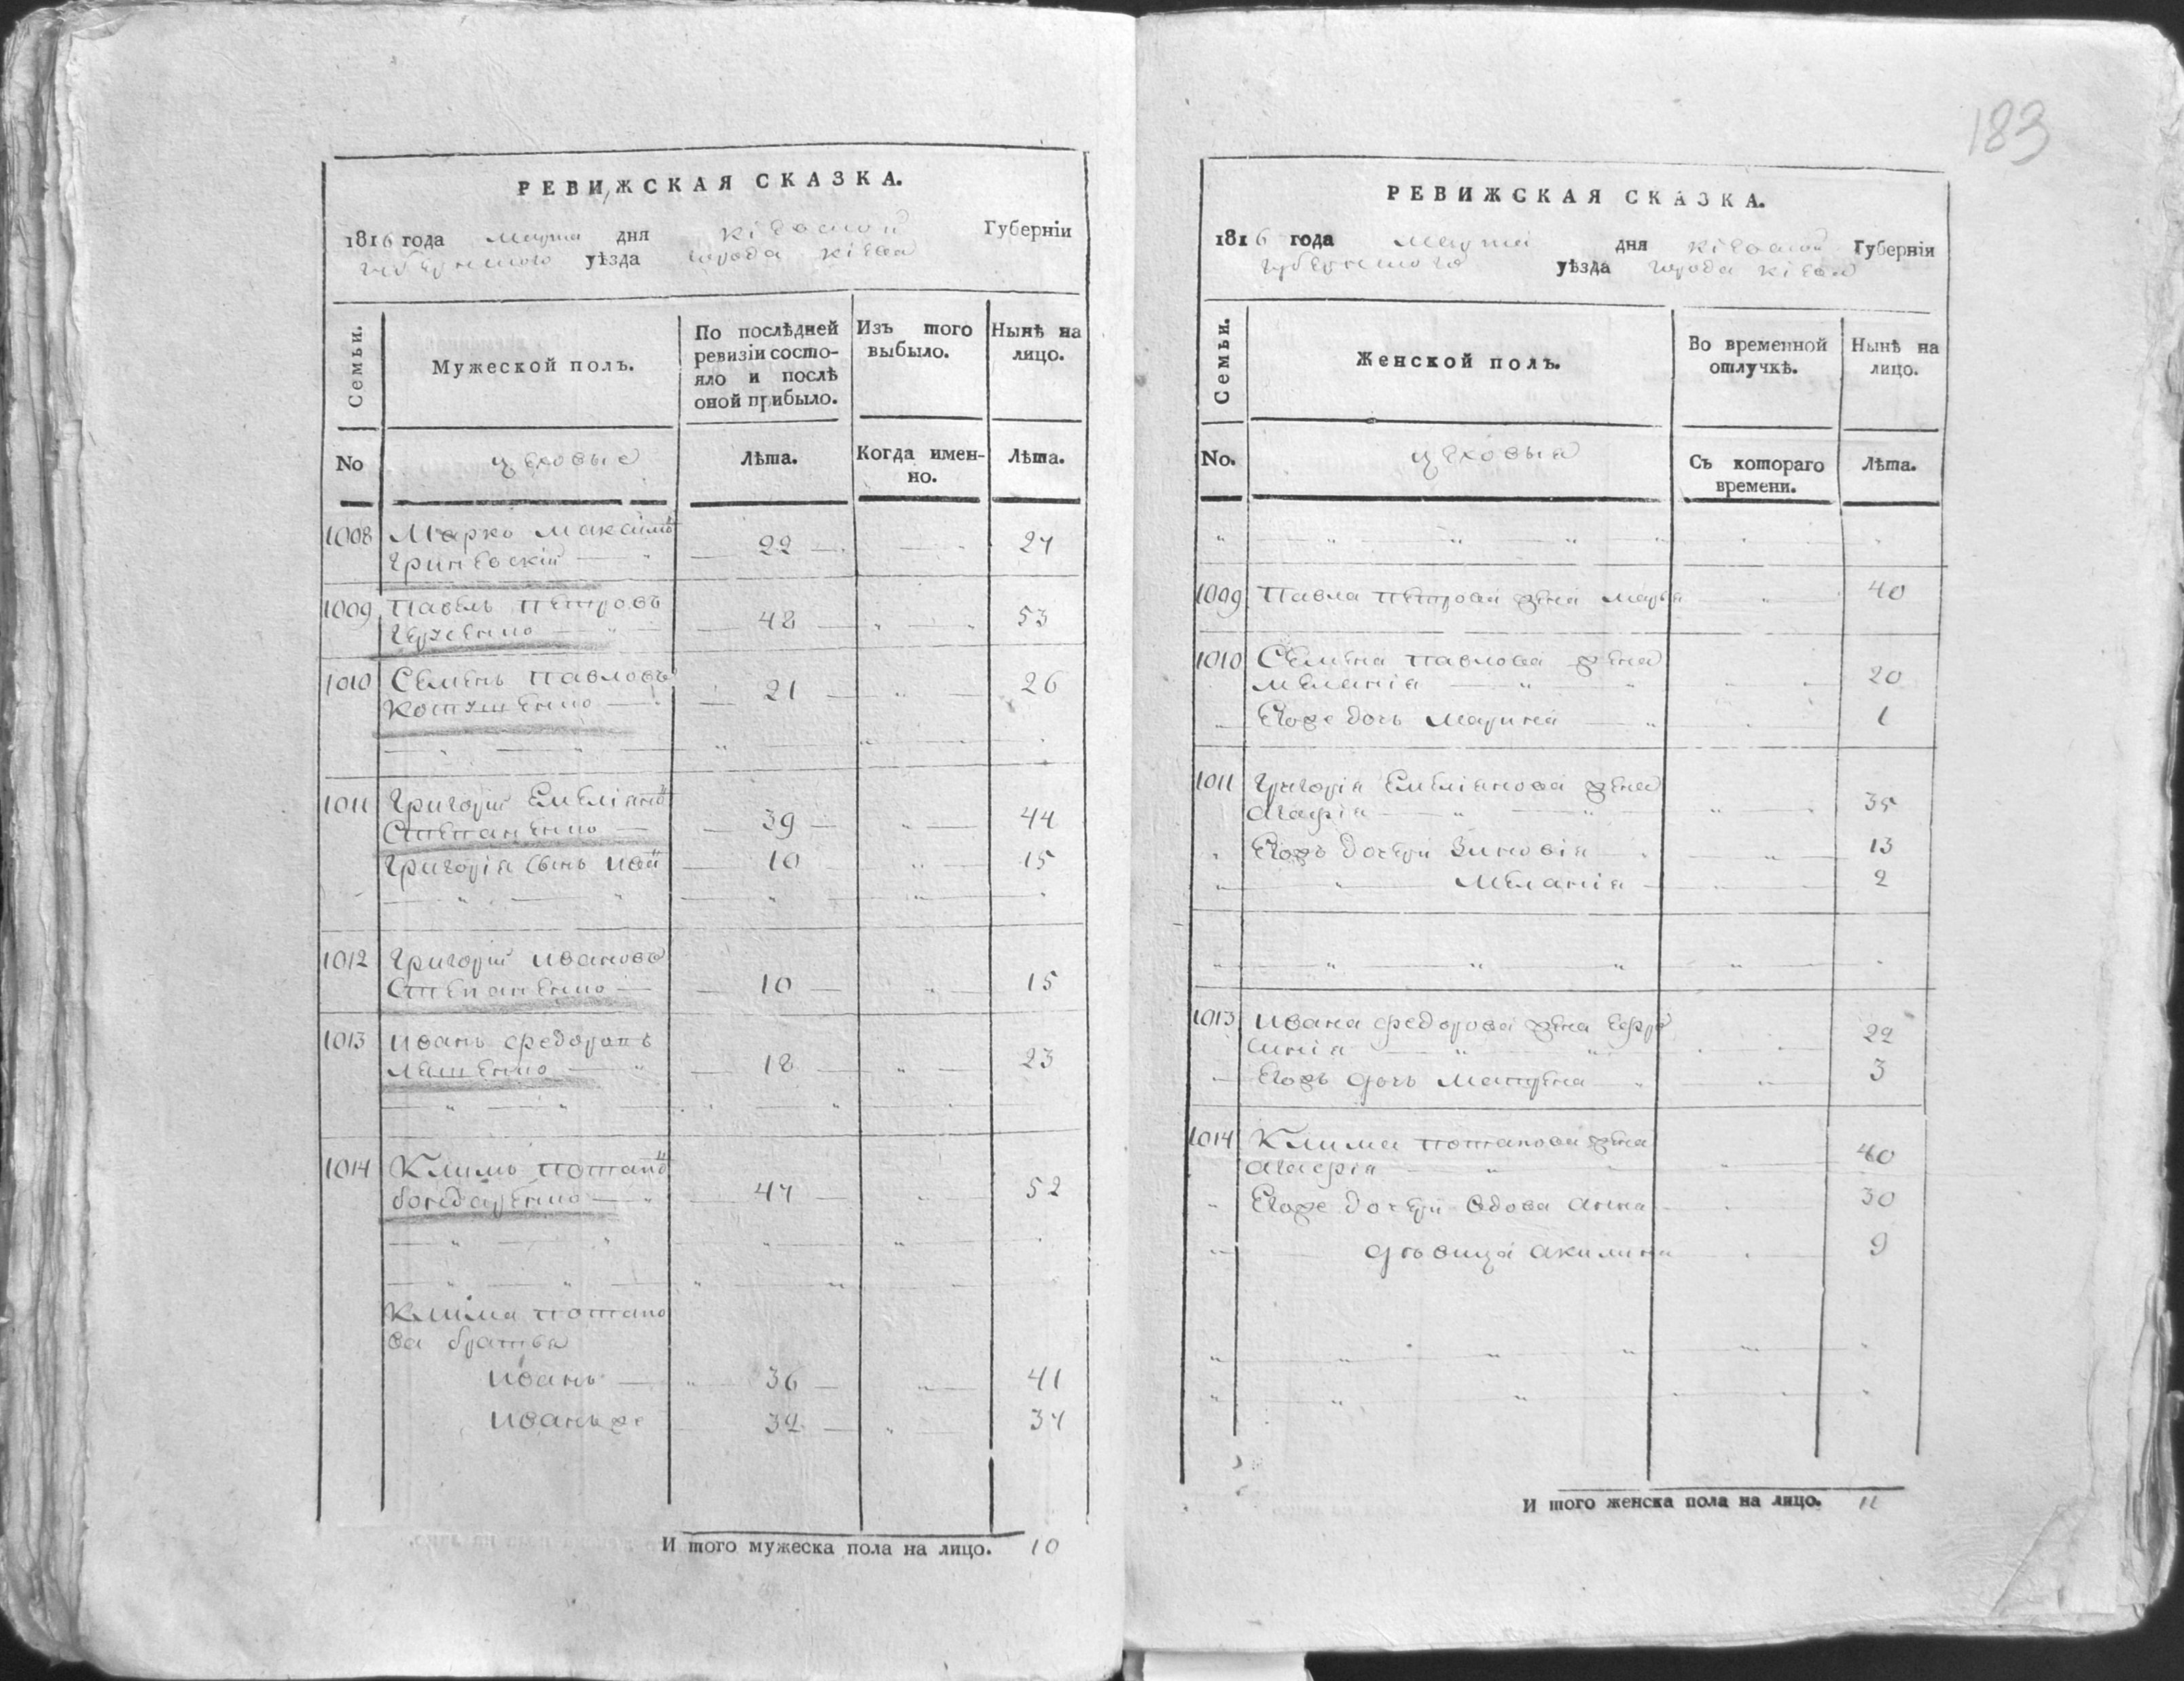 РЕВИЖСКАЯ СКАЗКА.
1816 года марта дня кіевской Губерніи
губернского уѣзда города кіева
Семьи.
Мужеской полъ.
По послѣдней ревизіи состояло и послѣ оной прибыло.
Изъ того выбыло.
Нынѣ на лицо.
No
цеховые
Лѣта.
Когда именно.
Лѣта.
1008 Марко Максимо
Гриневскій 22 27
1009 Павелъ Петровъ
48 53
1010 Семенъ Павловъ
21 26
1011 Григорій Емеліяно
Степаненко 39 44
Григорія сынъ Ива 10 15
1012 Григорій Ивановъ
Степаненко 10 15
1013 Иванъ Федоровъ
Лешенко 18 23
1014 Климъ Потапо
бондаренко 47 52
Клима Потапо
ва братья
Иванъ 36 41
Иванъ же 32 37
И того мужеска пола на лицо. 10
183
РЕВИЖСКАЯ СКАЗКА.
1816 года марта дня кіевской Губерніи
губернского уѣзда города кіева
Семьи.
Женской полъ.
Во временной отлучкѣ.
Нынѣ на лицо.
No.
цеховыя
Съ котораго времени.
Лѣта.
1009 Павла Петрова жена Марья 40
1010 Семена Павлова жена
Меланія 20
Егоже дочь Марина 1
1011 Григорія Емеліянова жена
Агафія 35
Егожъ дочери Зиновія 13
Меланія 2
1013 Ивана Федорова жена Ефро
синія 22
Егожъ дочь Матрена 3
1014 Клима Потапова жена
Агафія 40
Егоже дочери вдова Анна 30
дѣвица Акилина 9
И того женска пола на лицо. 11